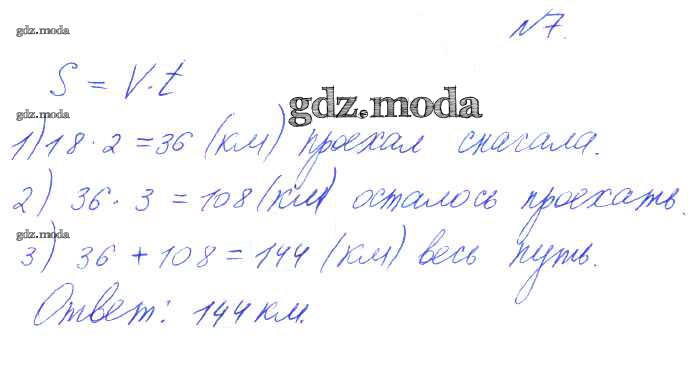 gdz.moda
N7.
S = V·t
gdz.moda
1) 18·2=36 (км) проехал сначала.
gdz.moda
2) 36·3=108 (км) осталось проехать.
gdz.moda
3) 36+108=144 (км) весь путь.
Ответ: 144 км.